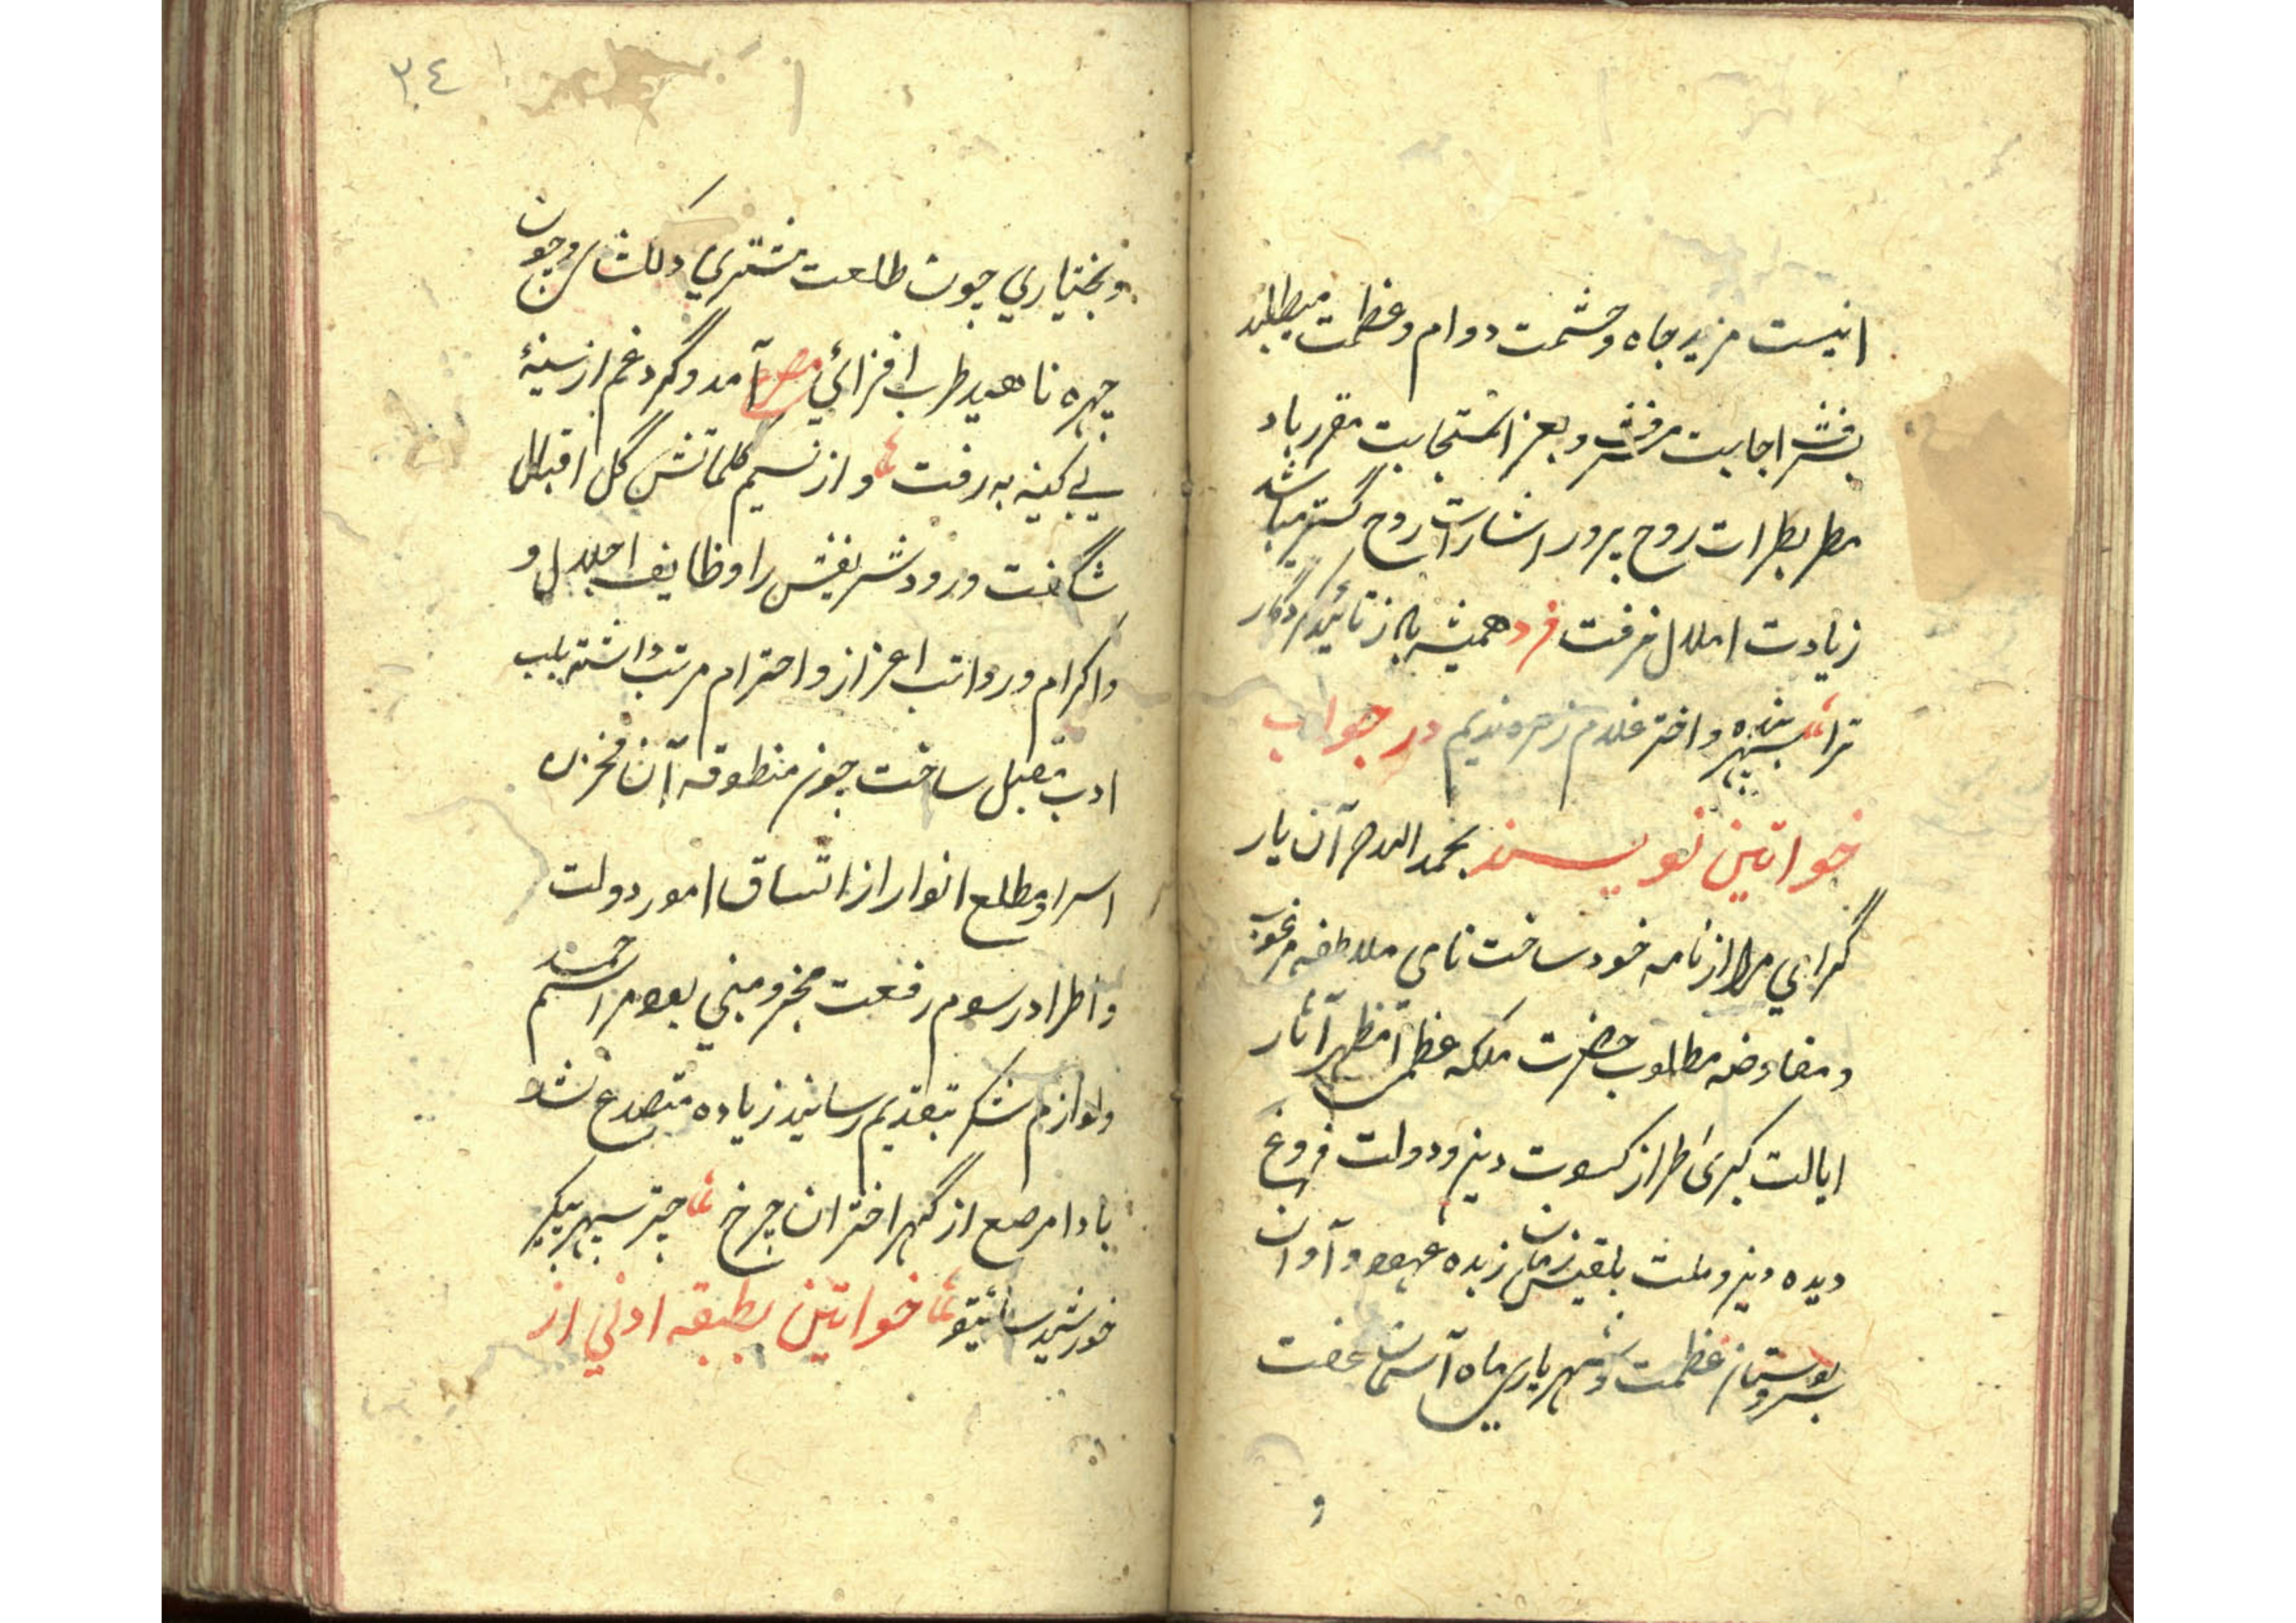 انیست مزید جاه و حشمت دوام و عظمت میطلبد
بشرف اجابت مرفت و بعز استجابت مقرر باد
مطر بطرات روح پرور اشارات روح گستر میباشد
زیادت املال نرفت فرد همیشه باد ز تائید کردگار
ترا سپهر بنده و اختر غلام زهره ندیم در جواب
خواتین نویسند بحمدالله هر آن یار
گرامی مرا از نامه خود ساخت نامی ملاطفه مرغوب
و مفاوضه مطلوب حضرت ملکه عظمی مظهر آثار
ایالت کبری طراز کسوت دین و دولت فروغ
دیده دین و ملت بلقیس زمان زبده عهود و آوان
سرو بوستان عظمت و شهریاری ماه آسمان عفت
و
٣٤
و بختیاری چون طلعت مشتری دلکشای و چون
چهره ناهید طرب افزائی مصرع آمد و گرد غم از سینهٔ
بی کینه به رفت و از نسیم کلماتش گل اقبال
شگفت ورود شریفش را وظایف اجلال و
و اکرام و رواتب اعزاز و احترام مرتب داشته بلب
ادب مقبل ساخت چون منطوقه آن مخزن
اسرار و مطلع انوار از اتساق امور دولت
و اطراد رسوم رفعت مخبر و مبنی بود مراسم حمد
و لوازم شکر بتقدیم رسانید زیاده متصدع نشد
بادا مرصع از گهر اختران چرخ چتر سپهر پیکر
خورشید سای تو خواتین بطبقه ادنی از